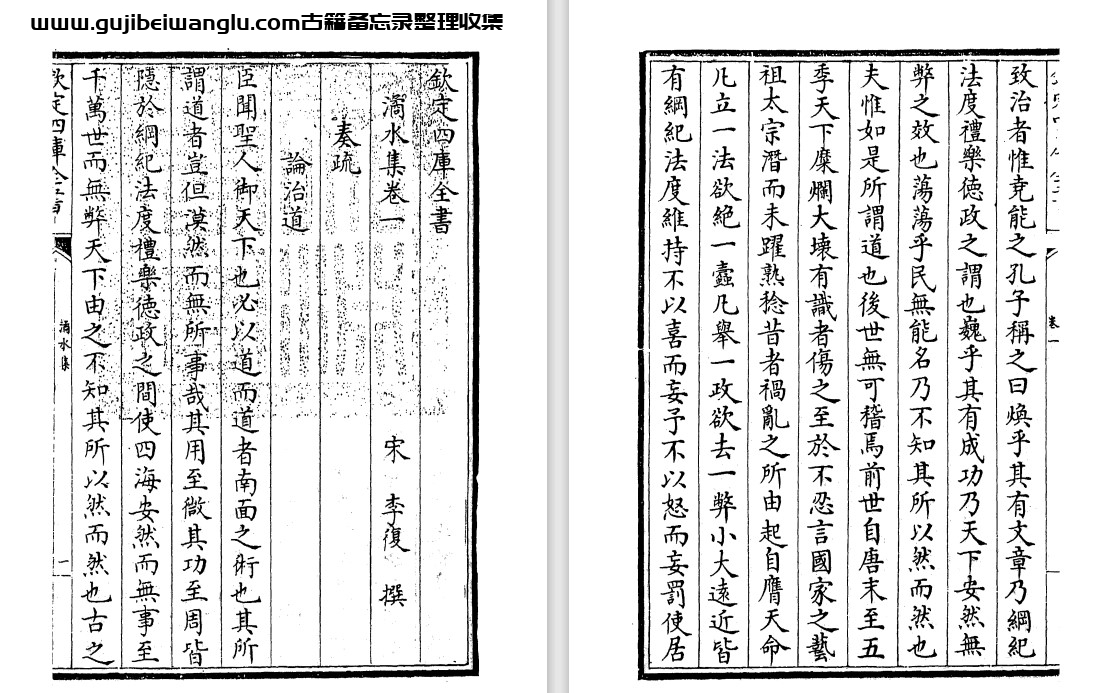 www.gujibeiwanglu.com古籍备忘录整理收集
欽定四庫全書
潏水集卷一
宋 李復 撰
奏疏
論治道
臣聞聖人御天下也必以道而道者南面之術也其所
謂道者豈但漠然而無所事哉其用至微其功至周皆
隱於綱紀法度禮樂德政之間使四海安然而無事至
千萬世而無弊天下由之不知其所以然而然也古之
欽定四庫全書
潏水集
一
致治者惟堯能之孔子稱之曰煥乎其有文章乃綱紀
法度禮樂德政之謂也巍乎其有成功乃天下安然無
弊之效也蕩蕩乎民無能名乃不知其所以然而然也
夫惟如是所謂道也後世無可稽焉前世自唐末至五
季天下糜爛大壞有識者傷之至於不忍言國家之藝
祖太宗潛而未躍熟稔昔者禍亂之所由起自膺天命
凡立一法欲絕一蠹凡舉一政欲去一弊小大遠近皆
有綱紀法度維持不以喜而妄予不以怒而妄罰使居
卷一